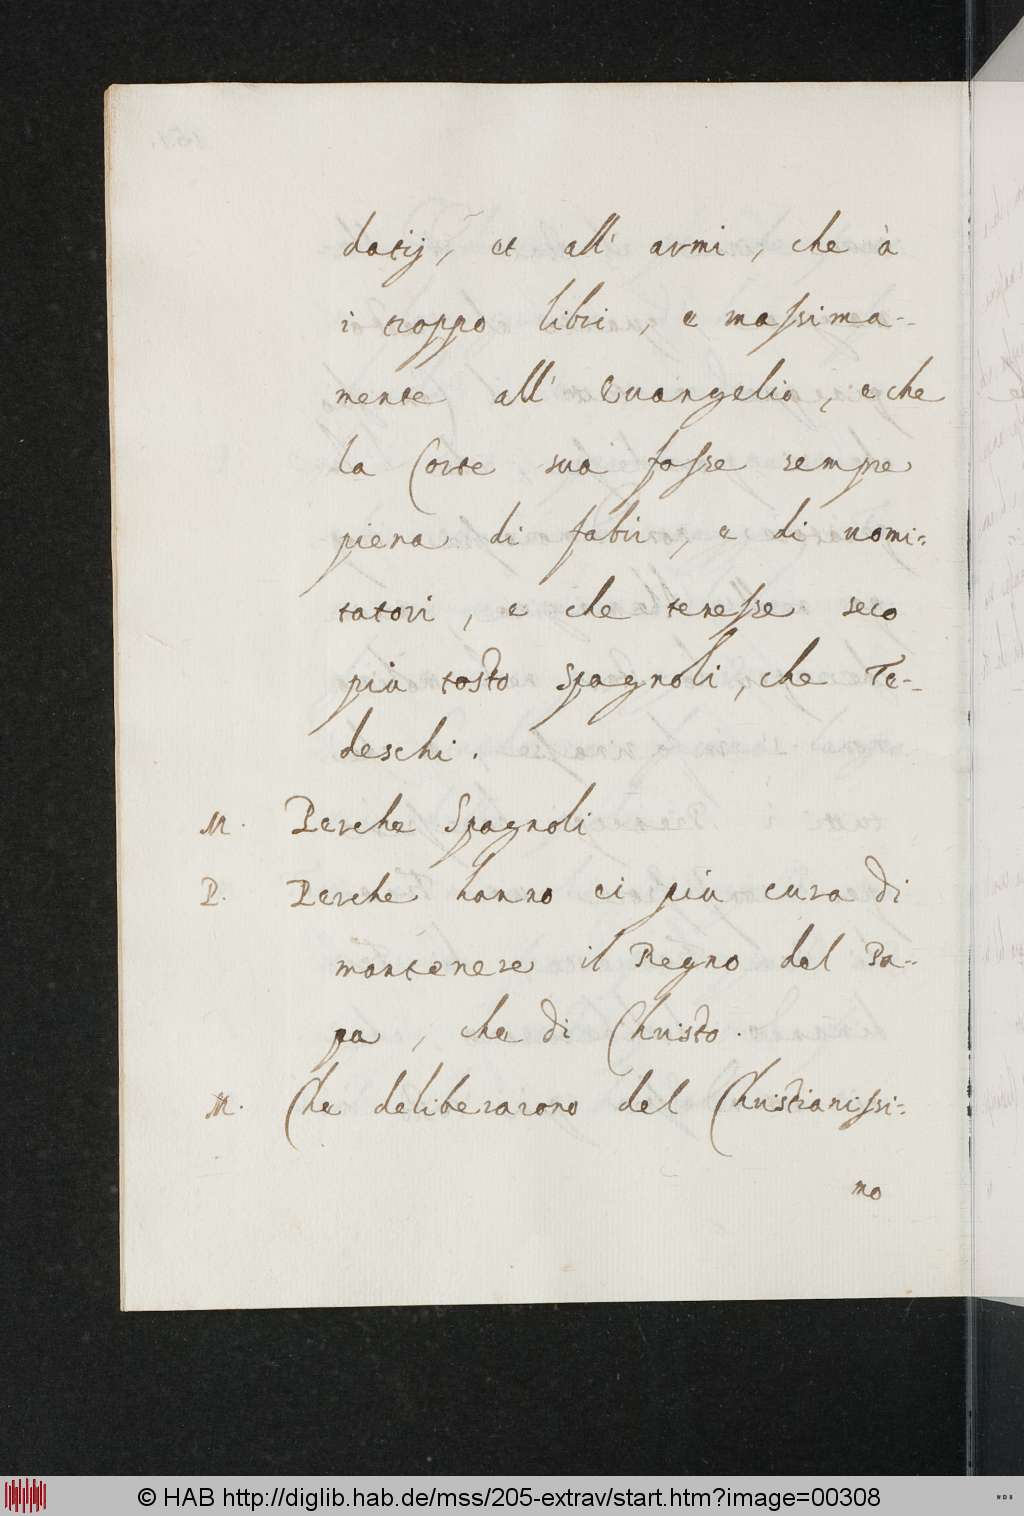 datij, et all' armi, che à
i troppo libri, e massima-
mente all' Euangelio, e che
la Corte sua fosse sempre
piena di fabri, e di uomi=
tatori, e che tenesse seco
più tosto Spagnoli, che Te-
deschi.
M. Perche Spagnoli
P. Perche hanno ei più cura di
mantenere il Regno del Pa-
pa, che di Christo.
M. Che deliberarono del Christianissi=
mo
© HAB http://diglib.hab.de/mss/205-extrav/start.htm?image=00308